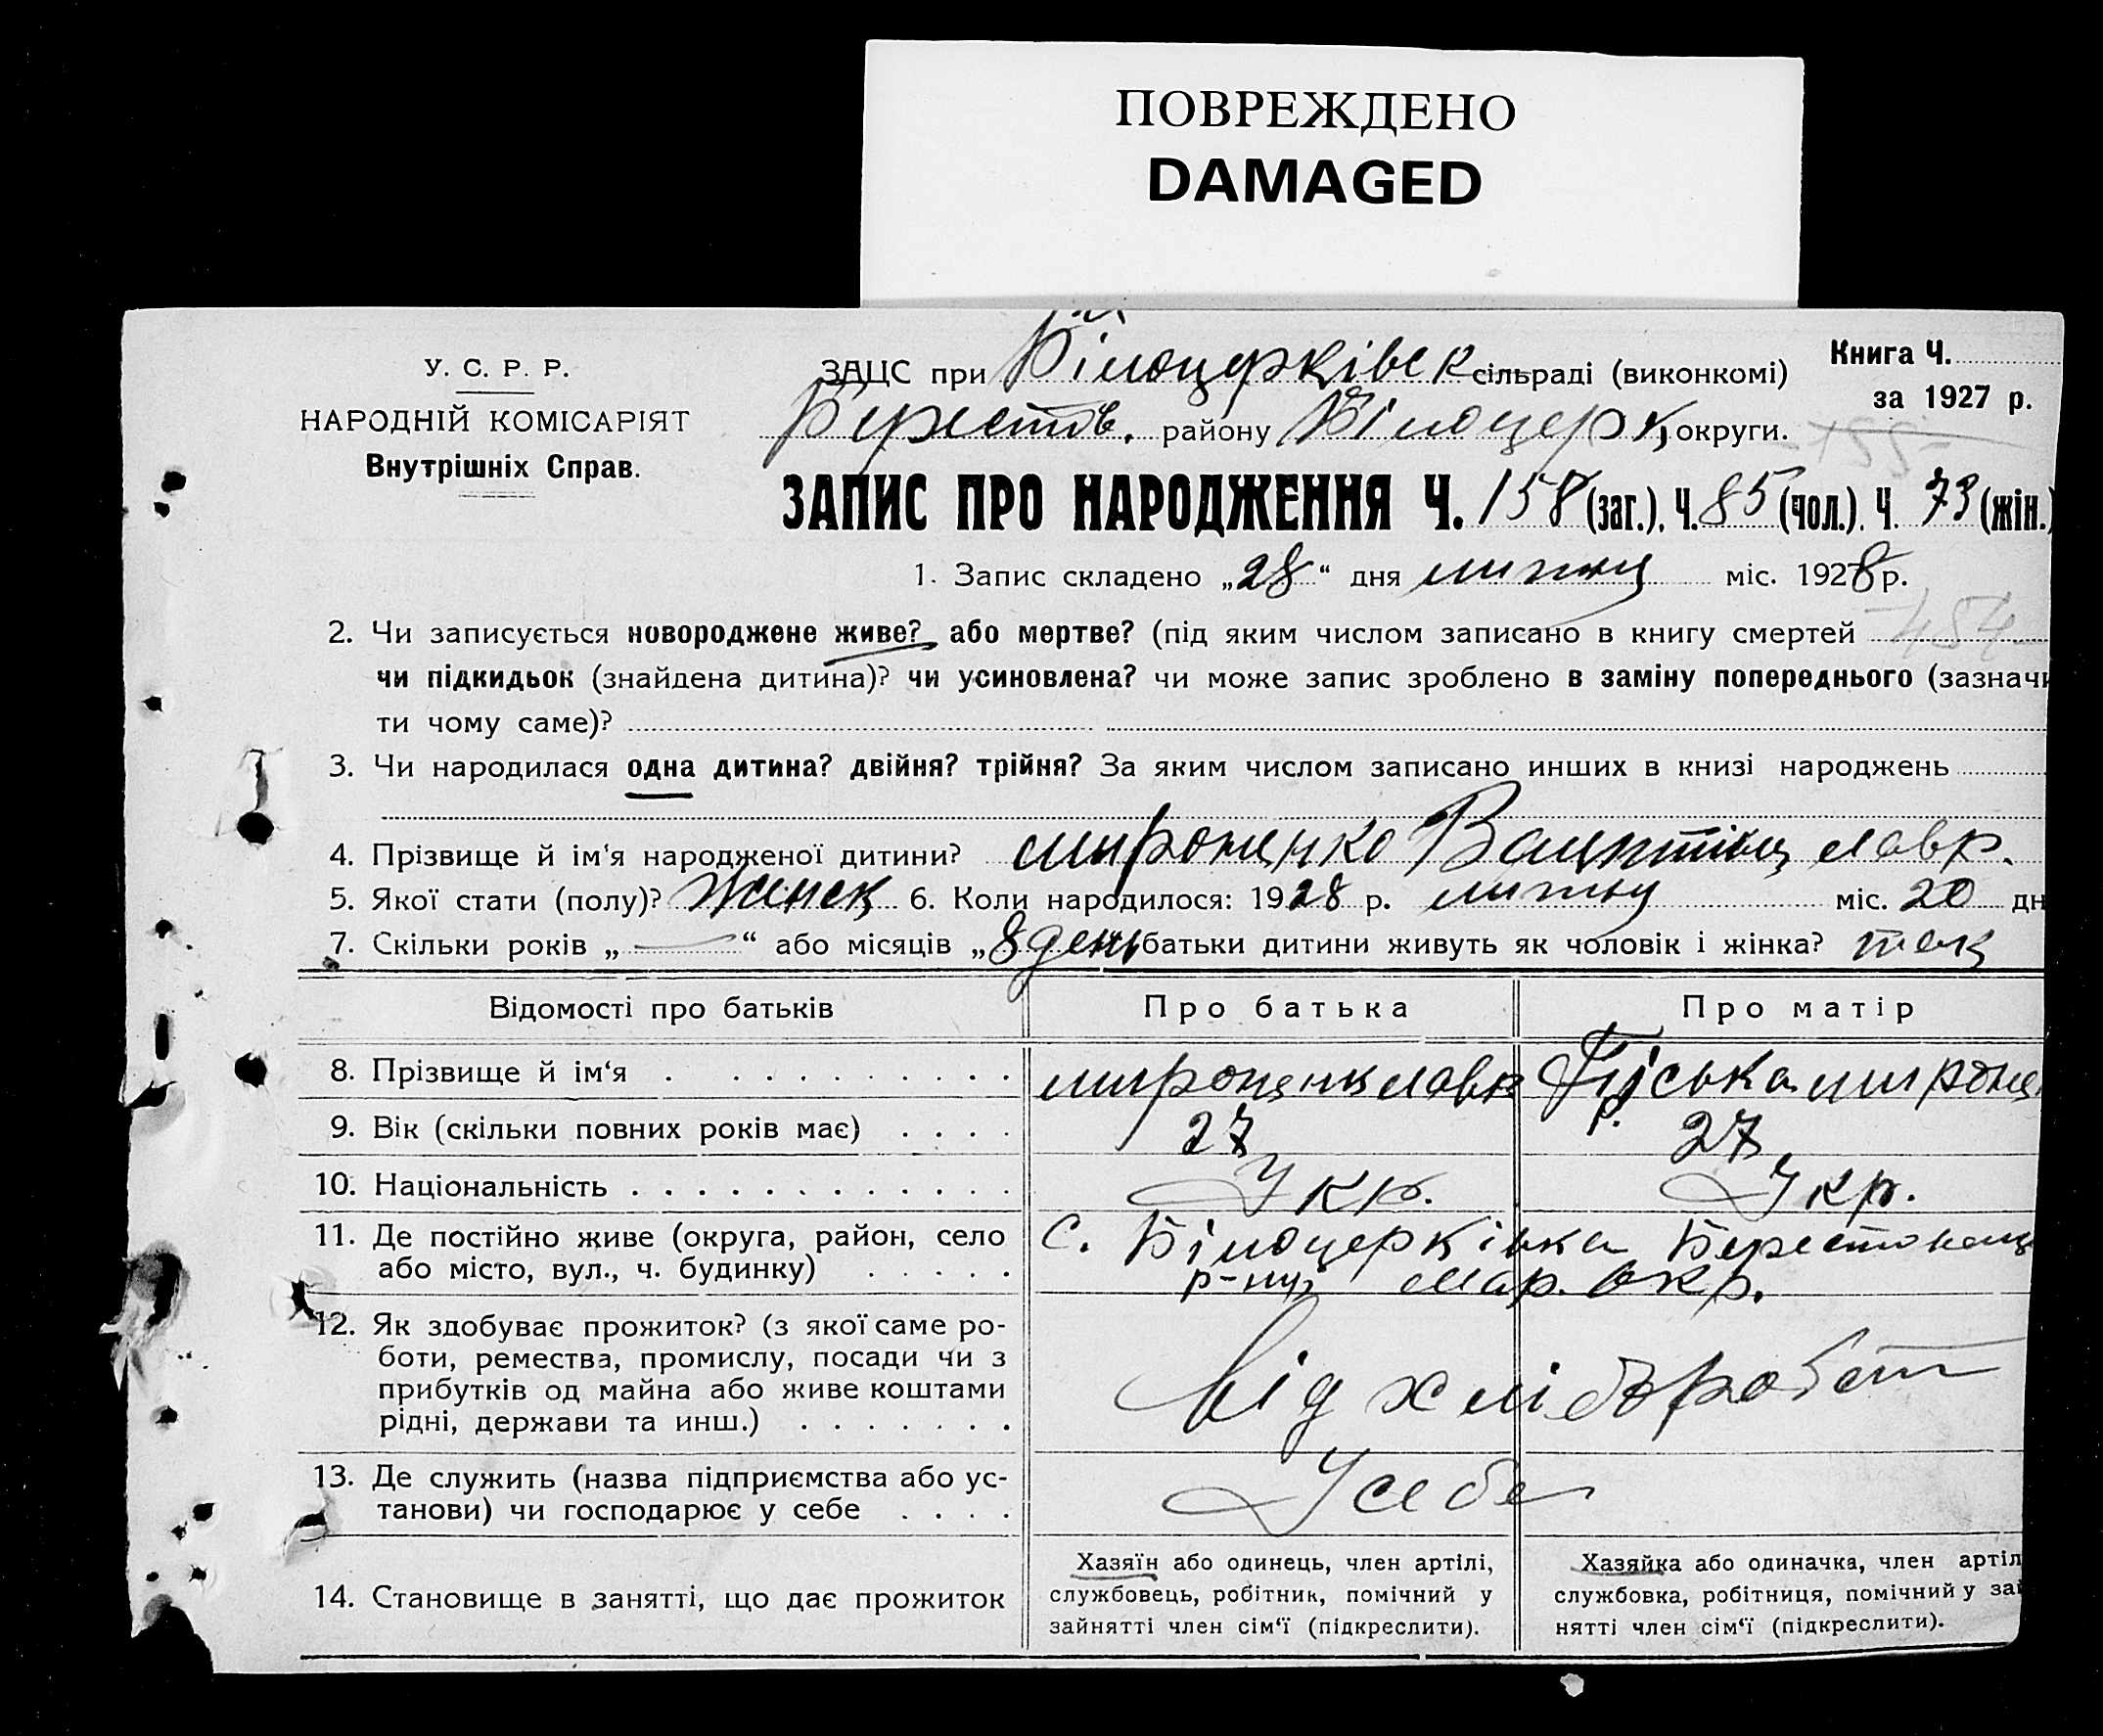 ПОВРЕЖДЕНО
DAMAGED
У. С. Р. Р.
НАРОДНІЙ КОМІСАРІЯТ
Внутрішніх Справ.
ЗАЦС при Білоцерківск сільраді (виконкомі)
Берестов. району Білоцерк округи.
Книга Ч.
за 1927 р.
ЗАПИС ПРО НАРОДЖЕННЯ Ч. 158 (заг.), Ч. 85 (чол.), Ч. 73 (жін.)
1. Запис складено „28“ дня липня міс. 1928 р.
2. Чи записується новороджене живе? або мертве? (під яким числом записано в книгу смертей 454
чи підкидьок (знайдена дитина)? чи усиновлена? чи може запис зроблено в заміну попереднього (зазначи
ти чому саме)?
3. Чи народилася одна дитина? двійня? трійня? За яким числом записано инших в книзі народжень
4. Прізвище й ім'я народженої дитини? Мироненко Лавр.
5. Якої стати (полу)? Жінск 6. Коли народилося: 1928 р. липня міс. 20 дн
7. Скільки років „—“ або місяців „8 день батьки дитини живуть як чоловік і жінка? так
Відомості про батьків
Про батька
Про матір
8. Прізвище й ім'я . . . . . . . . . .
Мироненк Лавр
Мироне
9. Вік (скільки повних років має) . . . .
27
27
10. Національність . . . . . . . . . . . .
Укр.
Укр.
11. Де постійно живе (округа, район, село
або місто, вул., ч. будинку) . . . . .
с. Білоцерківка Берестовець
р-ну Мар. окр.
12. Як здобуває прожиток? (з якої саме ро-
боти, ремества, промислу, посади чи з
прибутків од майна або живе коштами
рідні, держави та инш.) . . . . . . .
Від хліборобст
13. Де служить (назва підприємства або ус-
танови) чи господарює у себе . . . .
У себе
14. Становище в занятті, що дає прожиток
Хазяїн або одинець, член артілі,
службовець, робітник, помічний у
зайнятті член сім'ї (підкреслити).
Хазяйка або одиначка, член артіл
службовка, робітниця, помічний у за
нятті член сім'ї (підкреслити).